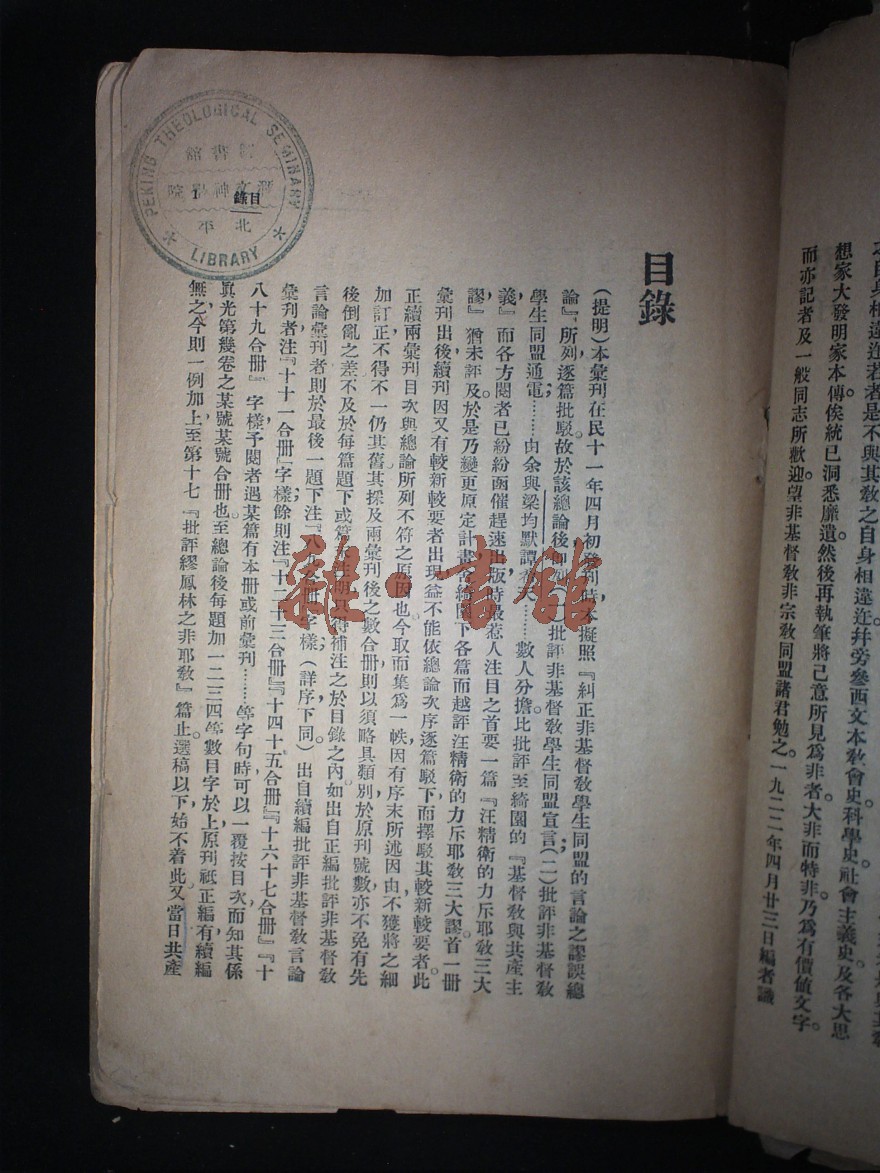 而亦記者及一般同志所歡迎望非基督教非宗教同盟諸君勉之一九二二年四月廿三日編者識
想家大發明家本傳俟統已洞悉靡遺然後再執筆將己意所見爲非者大非而特非乃爲有價値文字。
目錄
(提明)本彙刊在民十一年四月初發刊時本擬照『糾正非基督教學生同盟的言論之謬誤總
論』所列逐篇批駁故於該總論後卽
批評非基督教學生同盟宣言(二)批評非基督教
學生同盟通電……由余與梁均默譚
……數人分擔比批評至綺園的『基督教與共產主
義』而各方閱者已紛紛函催趕速出版時最惹人注目之首要一篇『汪精衛的力斥耶教三大
謬』猶未評及於是乃變更原定計畫舍綺園下各篇而越評汪精衛的力斥耶教三大謬首一册
彙刊出後續刊因又有較新較要者出現益不能依總論次序逐篇駁下而擇駁其較新較要者此
正續兩彙刊目次與總論所列不符之原因也今取而集爲一帙因有序末所述因由不獲將之細
加訂正不得不一仍其舊其採及兩彙刊後之數合册則以須略具類別於原刊號數亦不免有先
後倒亂之差不及於每篇題下或篇末注明只得補注之於目錄之內。如出自正編批評非基督教
言論彙刊者則於最後一題下注『八九合册』字樣(詳序下同)出自續編批評非基督教言論
彙刊者注『十十一合册』字樣餘則注『十二十三合册』『十四十五合册』『十六十七合册』『十
八十九合册』字樣予閱者遇某篇有本册或前彙刊……等字句時可以一覆按目次而知其係
眞光第幾卷之某號某號合册也至總論後每題加一二三四等數目字於上原刊祇正編有續編
無之今則一例加上至第十七『批評繆鳳林之非耶教』篇止選稿以下始不着此又當日共產
目錄
1
PEKING THEOLOGICAL SEMINARY
LIBRARY
北平